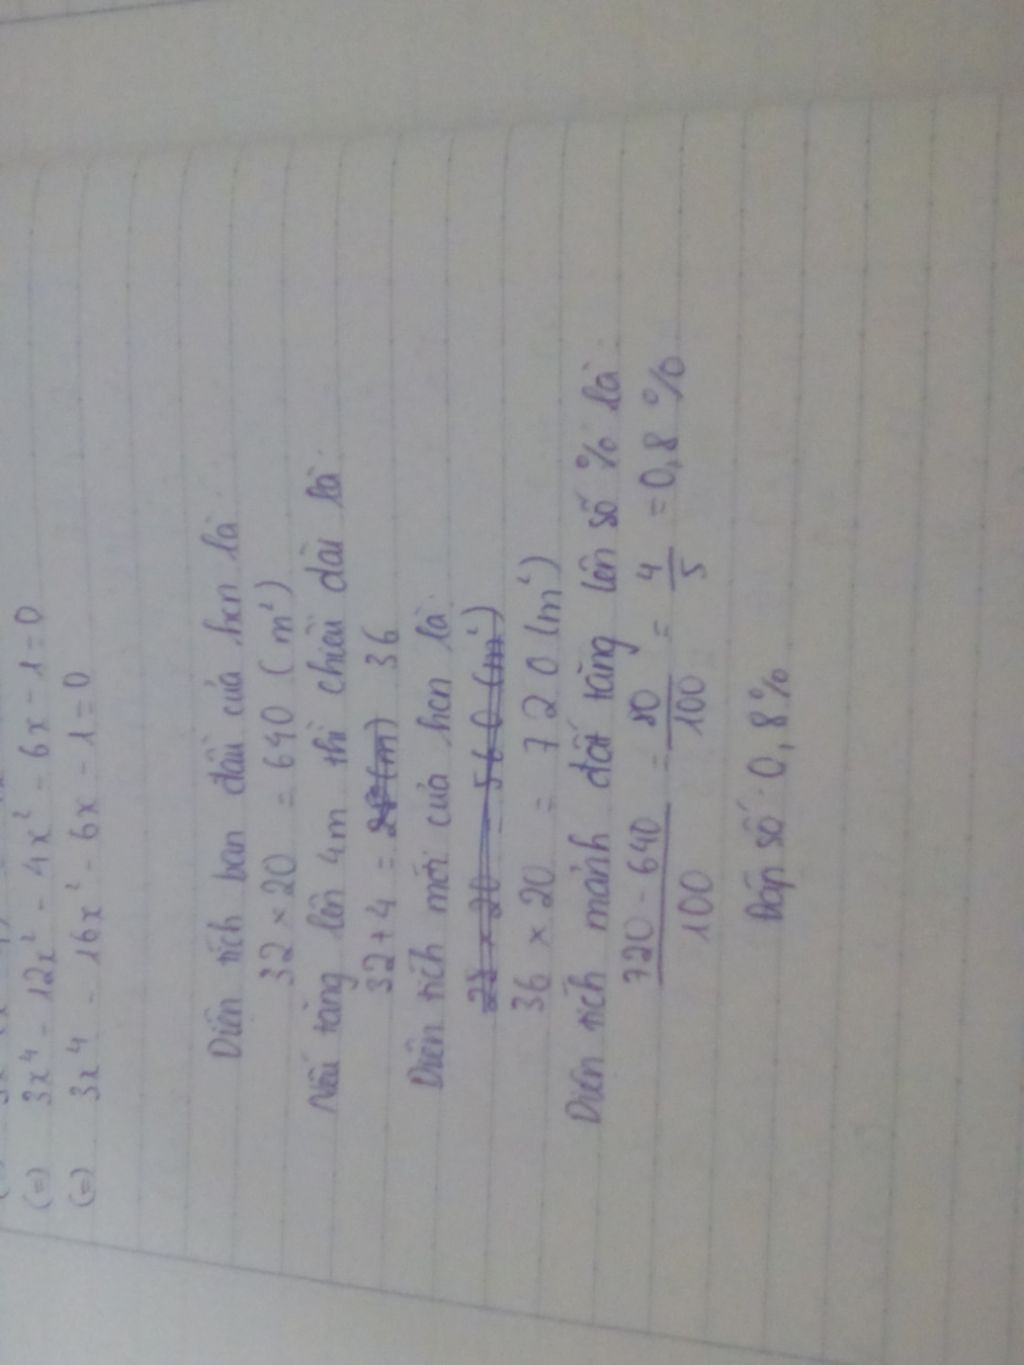 (=) 3x⁴ - 12x² - 4x² - 6x - 1 = 0
(=) 3x⁴ - 16x² - 6x - 1 = 0
Diện tích ban đầu của hcn là:
32 × 20 = 640 (m²)
Nếu tăng lên 4m thì chiều dài là:
32 + 4 = 36
Diện tích mới của hcn là:
36 × 20 = 720 (m²)
Diện tích mảnh đất tăng lên số % là:
720 - 640 / 100 = 80 / 100 = 4 / 5 = 0,8 %
Đáp số: 0,8%